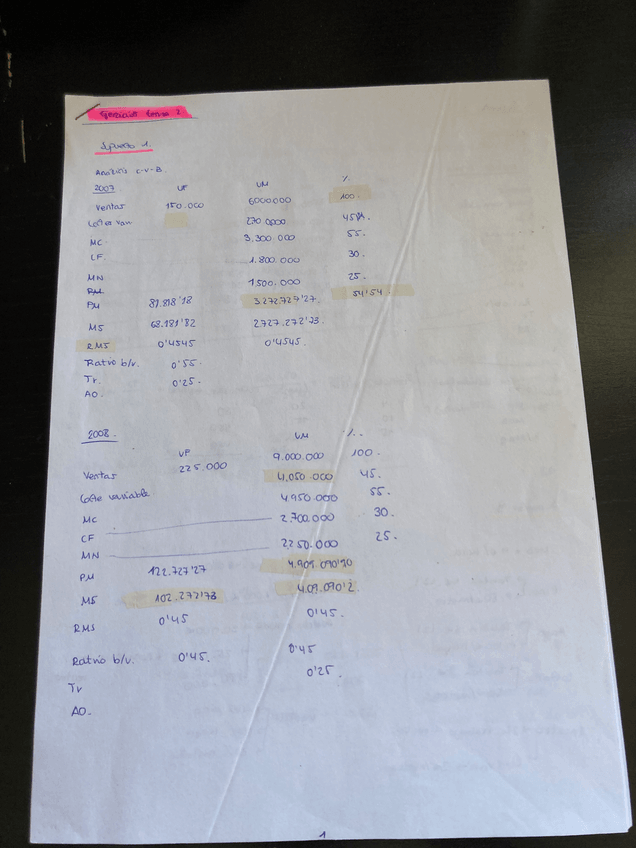 Ejercicios tema 2
Supuesto 1.
Análisis C-V-B.
2007 UF UM %
Ventas 150.000 6000000 100.
Costes var. 270.0000 45%.
MC 3.300.000 55.
CF. 1.800.000 30.
MN 1500.000 25.
PM 81.818'18 3.272.727'27. 54'54.
MS 68.181'82 2727.272'73
RMS 0'4545 0'4545.
Ratio b/v. 0'55.
Tr. 0'25.
AO.
2008. UF UM %.
Ventas 225.000 9.000.000 100.
Coste variable 4,050.000 45.
MC 4.950.000 55.
CF 2.700.000 30.
MN 2250.000 25.
PM 122.727'27 4.909.090'90
MS 102.272'73 4.09.090'2.
RMS 0'45 0'45.
Ratio b/v. 0'45. 0'45
Tr 0'25.
AO.
1